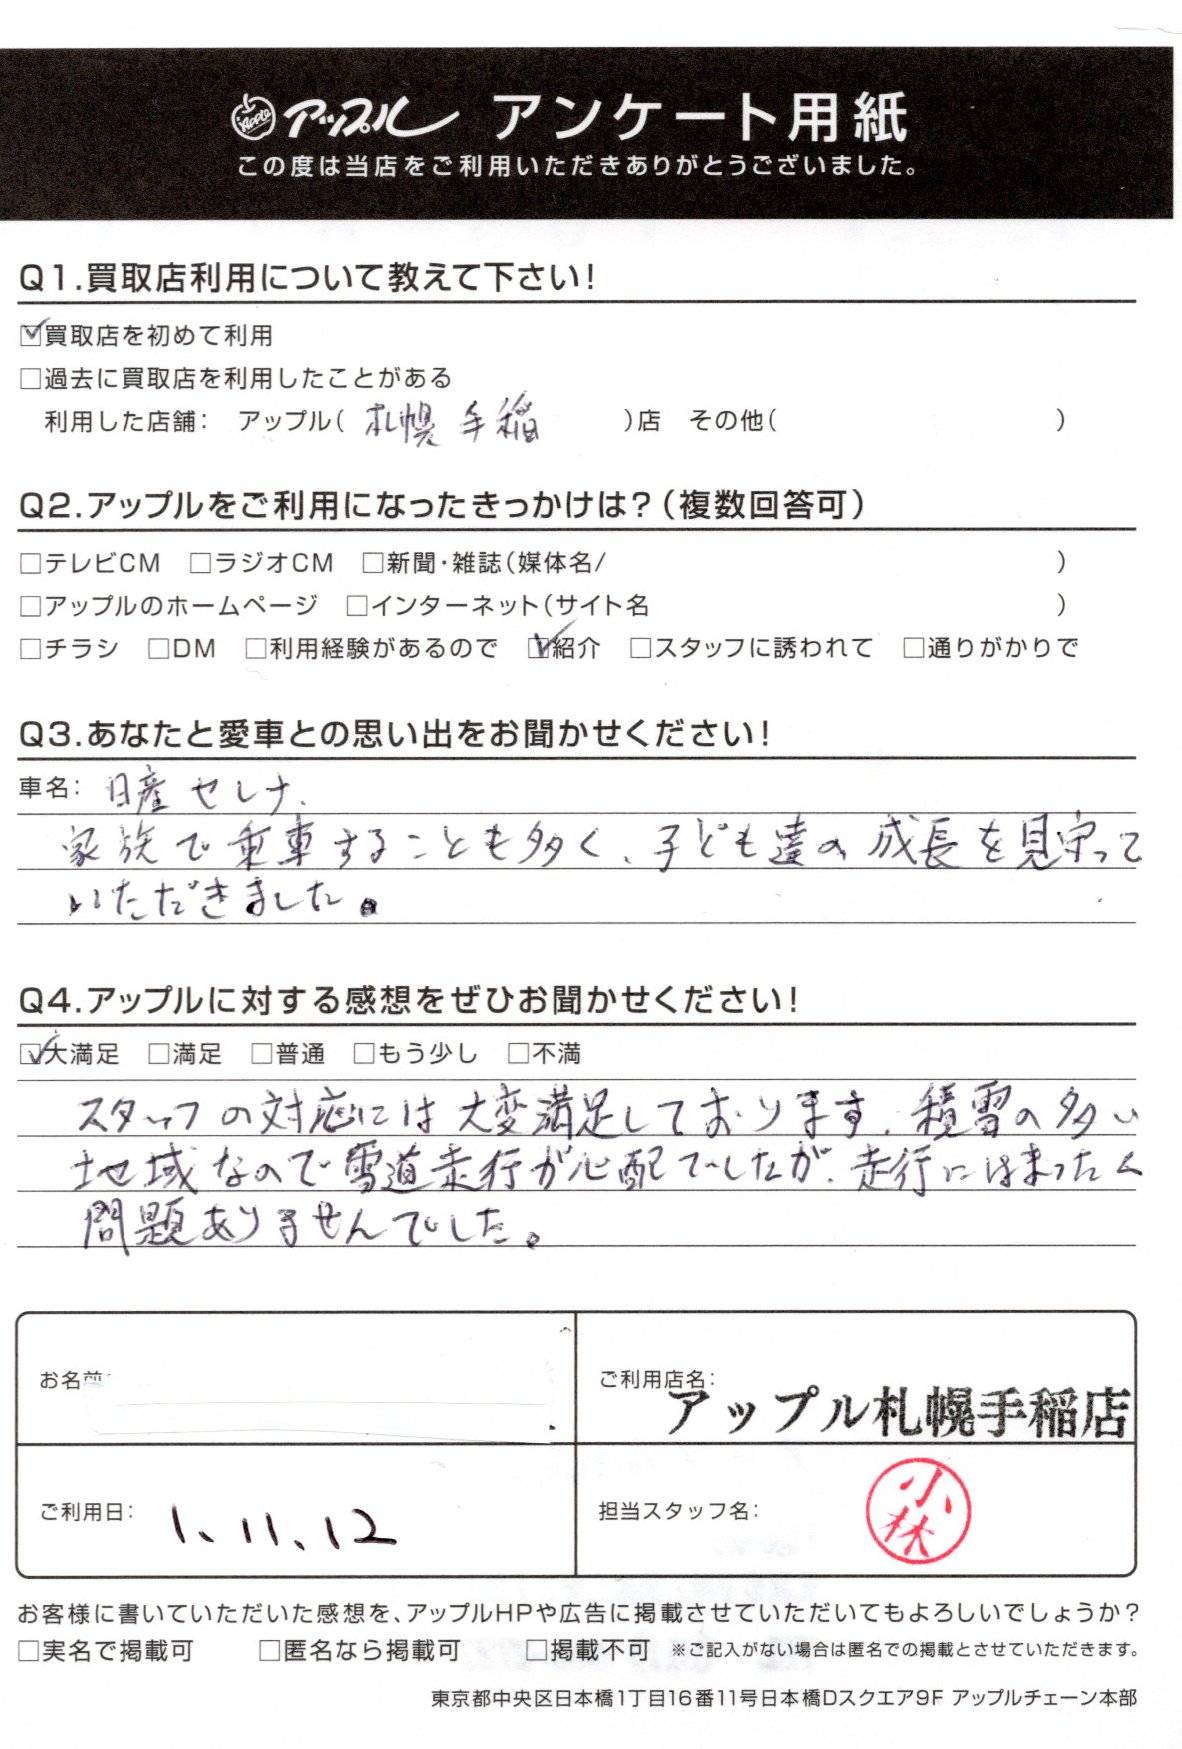 Apple アップル アンケート用紙
この度は当店をご利用いただきありがとうございました。
Q1.買取店利用について教えて下さい！
☑買取店を初めて利用
□過去に買取店を利用したことがある
利用した店舗： アップル（ 札幌 手稲 ）店 その他（ ）
Q2.アップルをご利用になったきっかけは？（複数回答可）
□テレビCM □ラジオCM □新聞・雑誌（媒体名/ ）
□アップルのホームページ □インターネット（サイト名 ）
□チラシ □DM □利用経験があるので ☑紹介 □スタッフに誘われて □通りがかりで
Q3.あなたと愛車との思い出をお聞かせください！
車名： 日産 セレナ.
家族で乗車することも多く、子ども達の成長を見守って
いただきました。
Q4.アップルに対する感想をぜひお聞かせください！
☑大満足 □満足 □普通 □もう少し □不満
スタッフの対応には大変満足しております。積雪の多い
地域なので雪道走行が心配でしたが、走行にはまったく
問題ありませんでした。
お名前
ご利用店名：
アップル札幌手稲店
ご利用日： 1、11、12
担当スタッフ名： 小林
お客様に書いていただいた感想を、アップルHPや広告に掲載させていただいてもよろしいでしょうか？
□実名で掲載可 □匿名なら掲載可 □掲載不可 ※ご記入がない場合は匿名での掲載とさせていただきます。
東京都中央区日本橋1丁目16番11号日本橋Dスクエア9F アップルチェーン本部